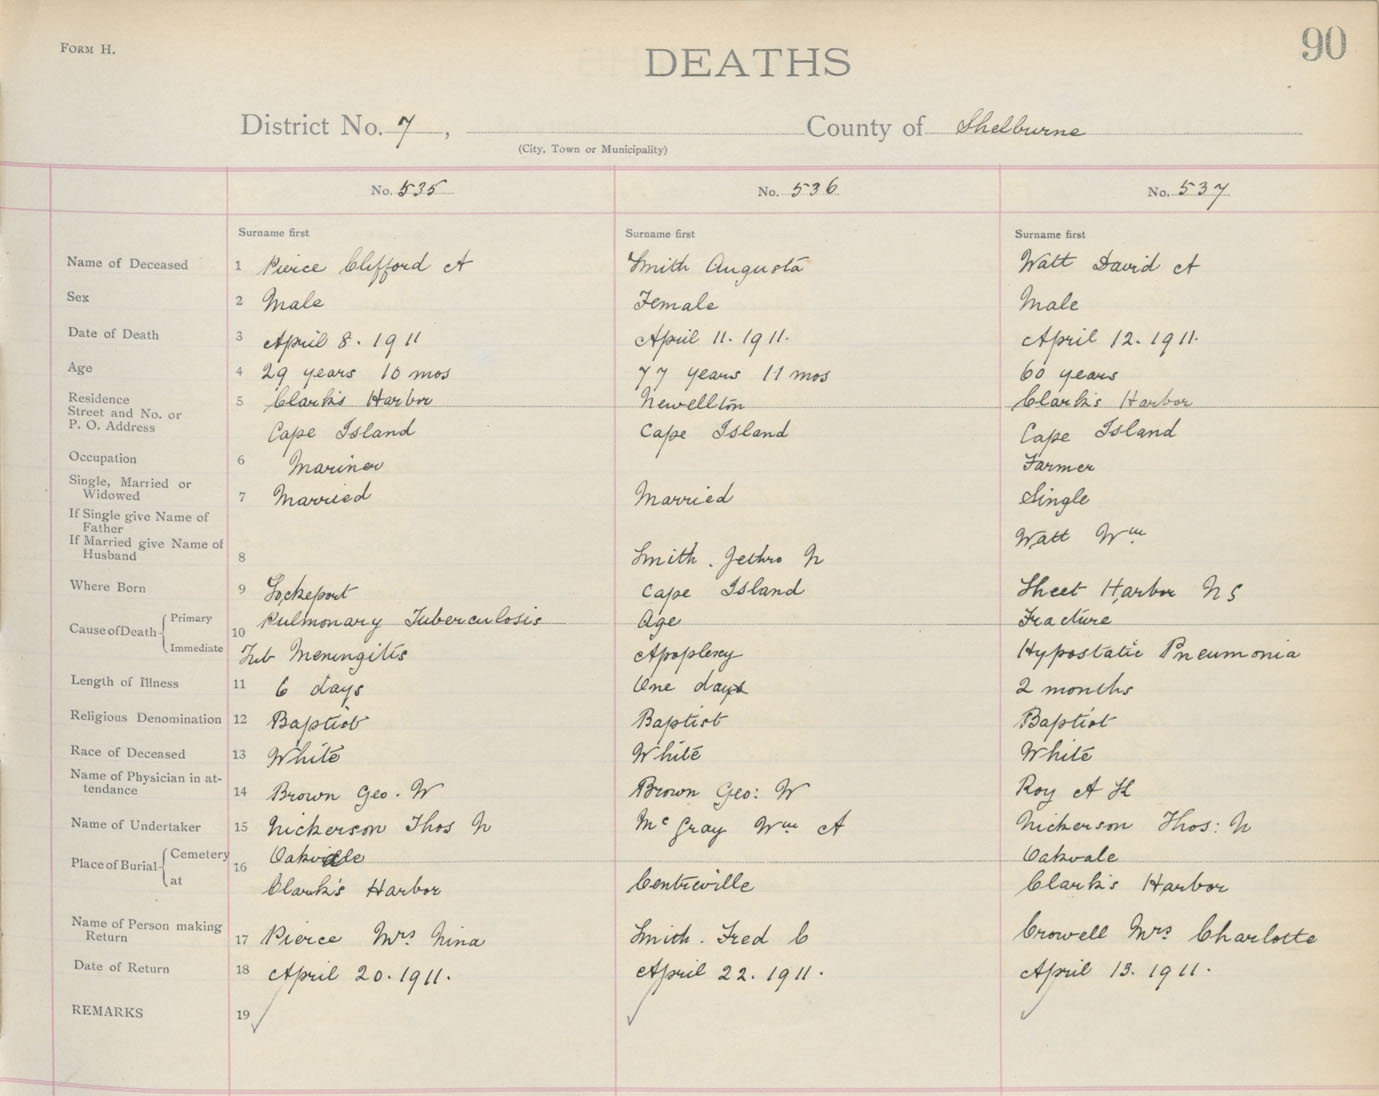 FORM H.
90
DEATHS
District No. 7, County of Shelburne
(City, Town or Municipality)
No. 535 No. 536 No. 537
Surname first Surname first Surname first
Name of Deceased 1 Pierce Clifford A Smith Augusta Watt David A
Sex 2 Male Female Male
Date of Death 3 April 8. 1911 April 11. 1911. April 12. 1911.
Age 4 29 years 10 mos 77 years 11 mos 60 years
Residence 5 Clark's Harbor Newellton Clark's Harbor
Street and No. or
P. O. Address Cape Island Cape Island Cape Island
Occupation 6 Mariner Farmer
Single, Married or
Widowed 7 Married Married Single
If Single give Name of
Father Watt Wm
If Married give Name of
Husband 8 Smith. Jethro N
Where Born 9 Lockeport Cape Island Sheet Harbor N S
Cause of Death Primary 10 Pulmonary Tuberculosis Age Fracture
Immediate Tub Meningitis Apoplexy Hypostatic Pneumonia
Length of Illness 11 6 days One day 2 months
Religious Denomination 12 Baptist Baptist Baptist
Race of Deceased 13 White White White
Name of Physician in at-
tendance 14 Brown Geo. W Brown Geo: W Roy A H
Name of Undertaker 15 Nickerson Thos N McGray Wm A Nickerson Thos: N
Place of Burial Cemetery 16 Oakvale Oakvale
at Clark's Harbor Centreville Clark's Harbor
Name of Person making
Return 17 Pierce Mrs Nina Smith. Fred C Crowell Mrs Charlotte
Date of Return 18 April 20. 1911. April 22. 1911. April 13. 1911.
REMARKS 19